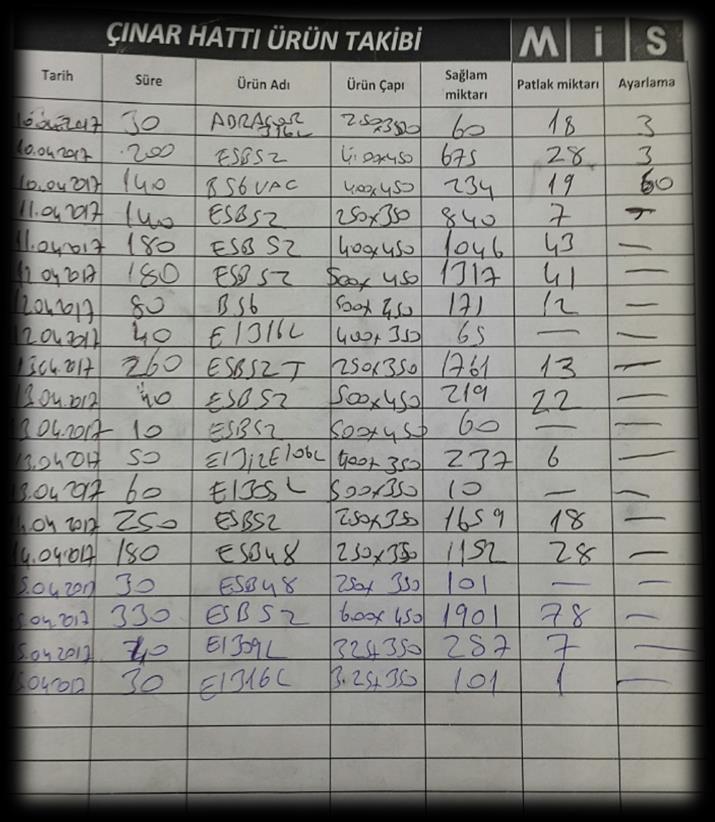 ÇINAR HATTI ÜRÜN TAKİBİ MİS
Tarih Süre Ürün Adı Ürün Çapı Sağlam miktarı Patlak miktarı Ayarlama
10.04.2017 30 316L 250x350 60 18 3
10.04.2017 200 ESB52 4.00x450 675 28 3
10.04.2017 140 BS6VAC 400x450 234 19 60
11.04.2017 140 ESB52 250x350 840 7 —
11.04.2017 180 ESB52 400x450 1046 43 —
12.04.2017 180 ESB52 500x450 1317 41 —
12.04.2017 80 BS6 500x450 171 12 —
12.04.2017 40 E1316L 400x350 65 — —
13.04.2017 260 ESB52T 250x350 1761 13 —
13.04.2017 40 ESB52 500x450 219 22 —
13.04.2017 10 ESB52 500x450 60 — —
13.04.2017 50 400x350 237 6 —
13.04.2017 60 E1308L 500x350 10 — —
14.04.2017 250 ESB52 250x350 1659 18 —
14.04.2017 180 ESB48 250x350 1152 28 —
5.04.2017 30 ESB48 250x350 101 — —
5.04.2017 330 ESB52 600x450 1901 78 —
5.04.2017 40 E1309L 325x350 287 7 —
5.04.2017 30 E1316L 3.25x350 101 1 —